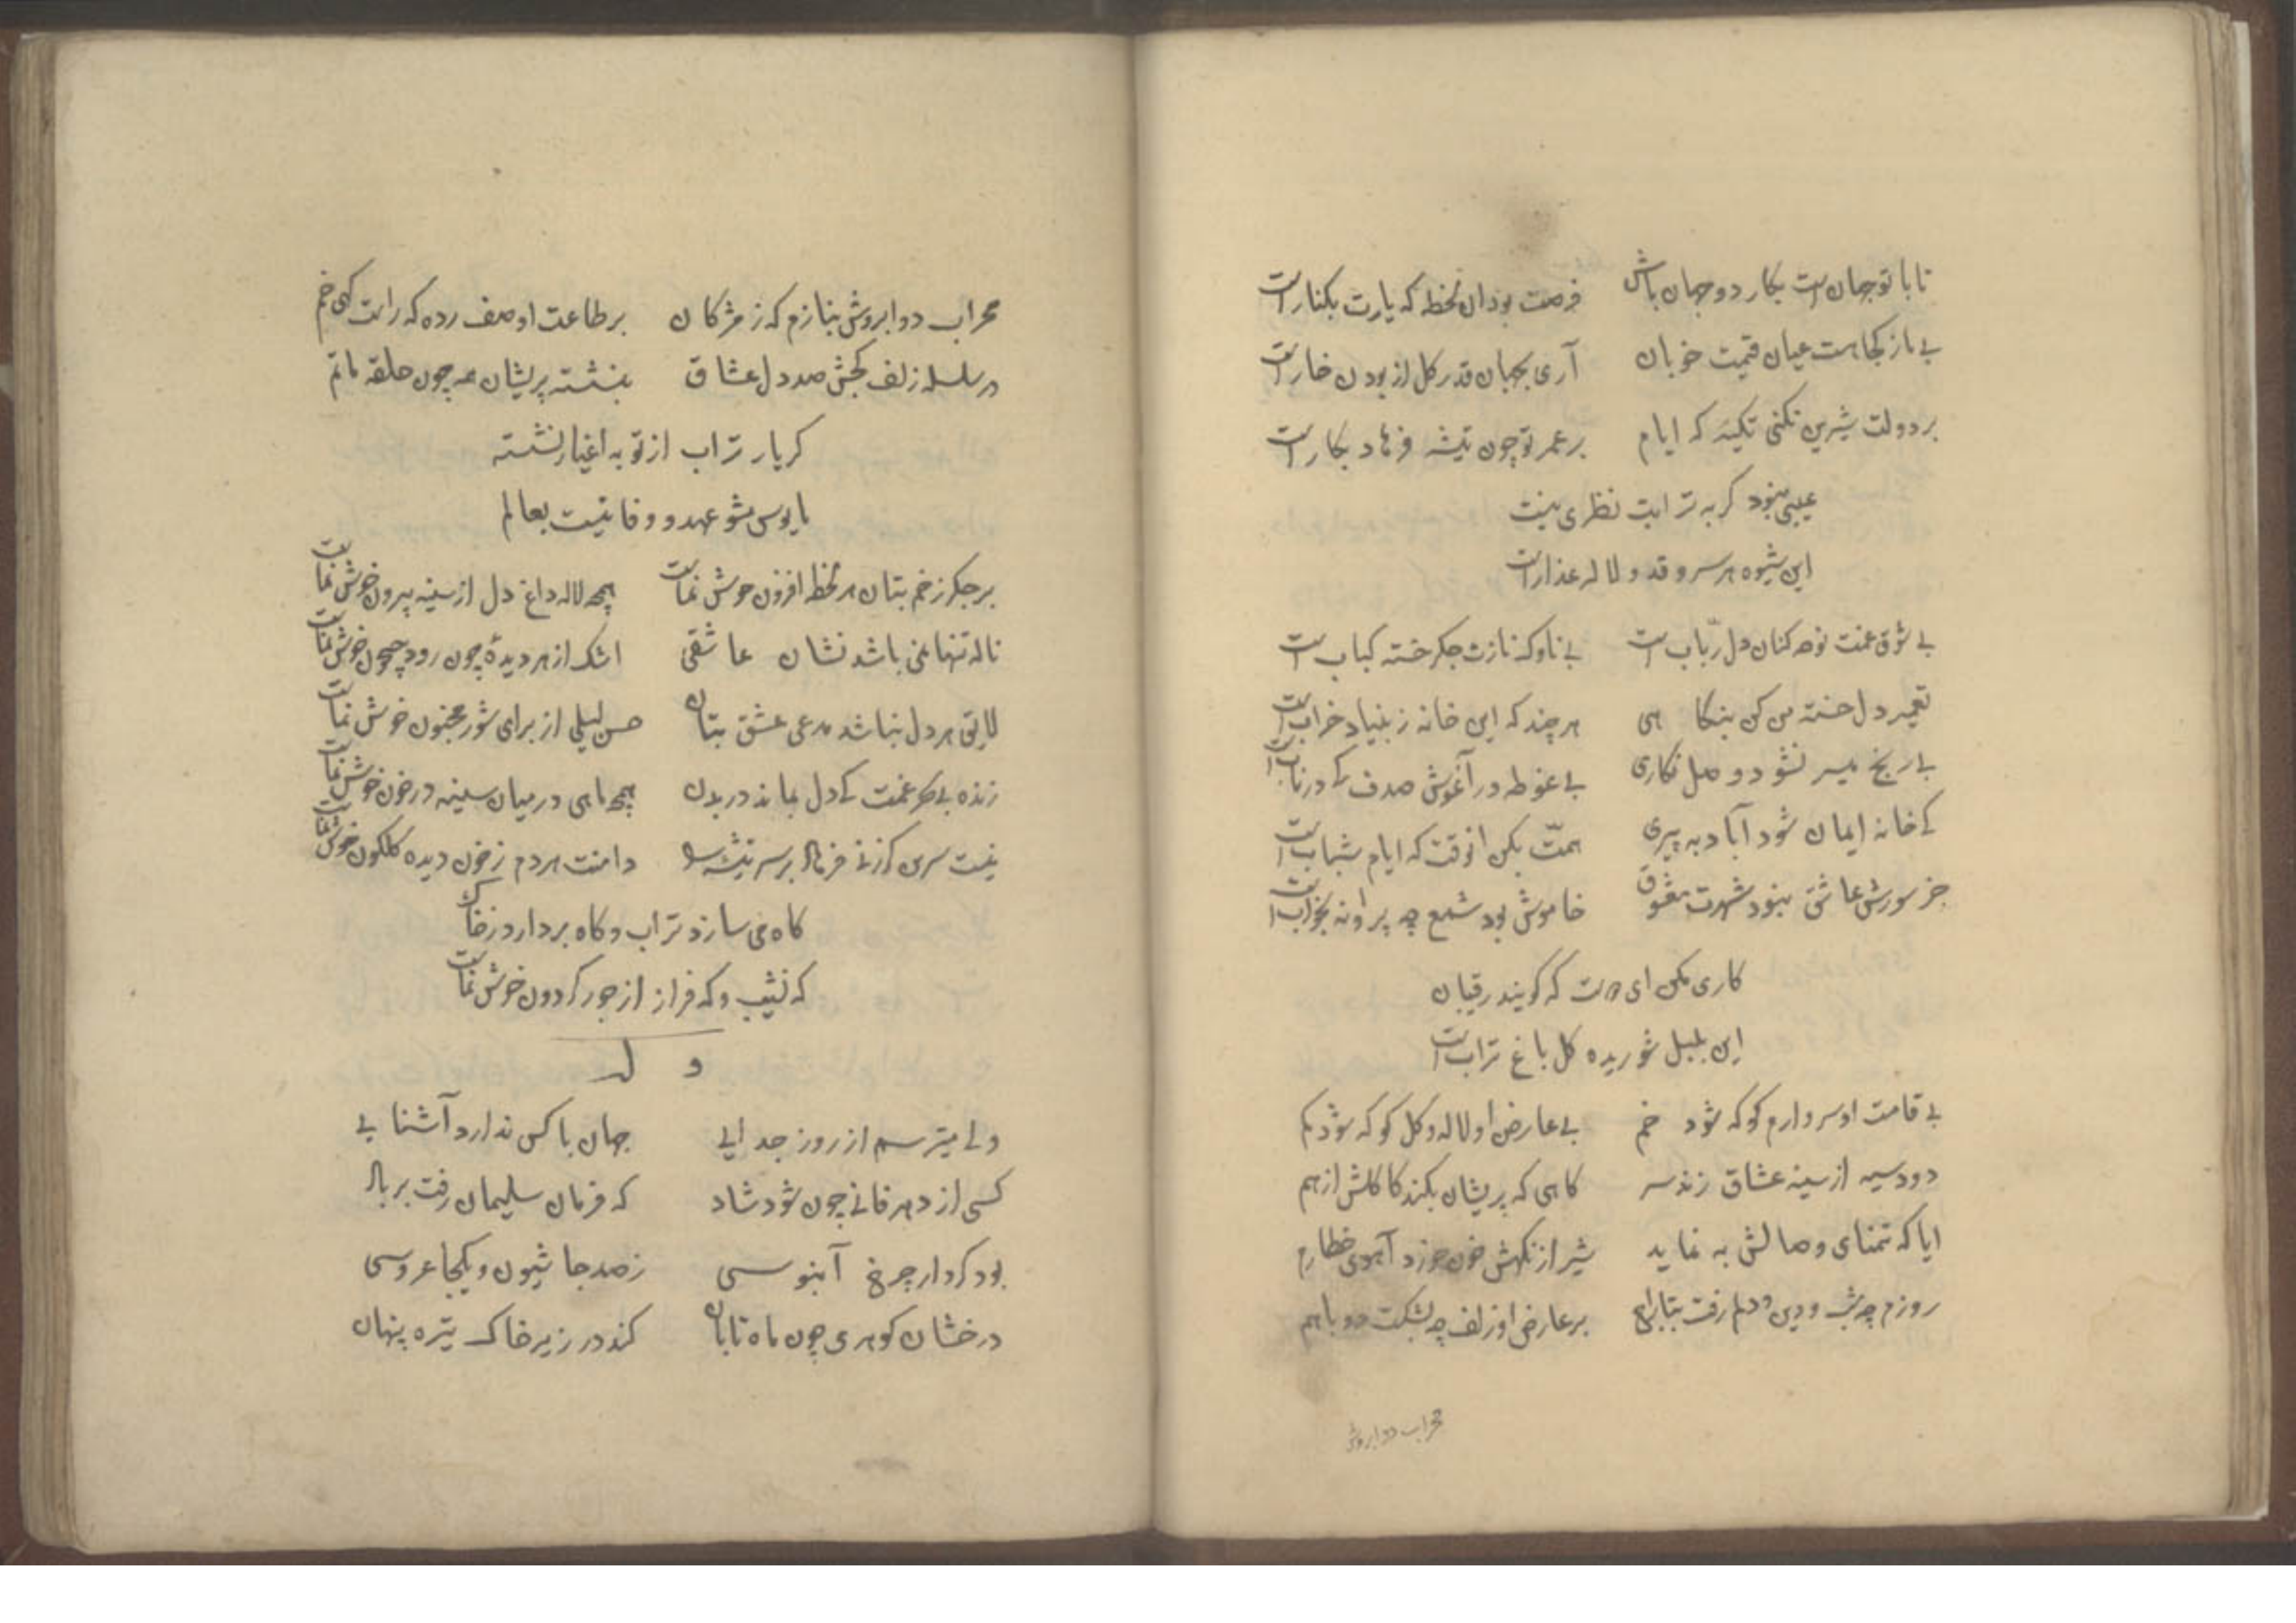 تا با تو جهانست بکار دو جهان باش فرصت بود آن لحظه که یارت بکنار است
بے باز کجا هست عیان قیمت خوبان آری بجهان قدر کل از بودن خار است
بر دولت شیرین نکنی تکیه که ایام بر عمر تو چون تیشه فرهاد بکار است
عیبی نبود کر به ترابت نظری نیست
این شیوه هر سرو قد و لاله عذار است
بے شوق غمت نوحه کنان دل رباب است بے ناوک نازت جکر خسته کباب است
تعمیر دل خسته من کن بنکاهی هر چند که این خانه ز بنیاد خراب است
بے رنج میسر نشود وصل نکاری بے غوطه در آغوش صدف کے در ناب است
کے خانه ایمان شود آباد به پیری همّت بکن انوقت که ایام شباب است
جز سورش عاشق نبود شهرت معشوق خاموش بود شمع چه پروانه بخواب است
کاری بکن ای دوست که کویند رقیبان
این بلبل شوریده کل باغ تراب است
بے قامت او سرو ارم کو که شود خم بے عارض او لاله و کل کو که شود کم
دود سیه از سینه عشاق زند سر کاهی که پریشان بکند کاکلش از هم
ایا که تمنای وصالش به نماید شیر از نکهش خون خورد آهوی خطا رم
روزم چه شب و دین و دلم رفت بتاراج بر عارض او زلف چه بشکست دو باهم
محراب دو ابروش
محراب دو ابروش بنازم که ز مژکان بر طاعت او صف زده که راست کهی خم
در سلسله زلف کجش صد دل عشاق بنشسته پریشان همه چون حلقه ماتم
کر یار تراب از تو به اغیار نشسته
مایوس مشو عهد و وفا نیست بعالم
بر جکر زخم بتان هر لحظه افزون خوش نماست همچه لاله داغ دل از سینه بیرون خوش نماست
ناله تنها نمی باشد نشان عاشقی اشک از هر دیدهٔ چون رود جیحون خوش نماست
لایق هر دل نباشد مدعی عشق بتان حسن لیلی از برای شور مجنون خوش نماست
زنده بے مهر غمت کے دل بماند در بدن همچه ماهی در میان سینه در خون خوش نماست
نیست سرین کر زنے فرهاد بر سر تیشه دامنت هردم ز خون دیده کلکون خوش نماست
کاه می سازد تراب و کاه بردارد ز خاک
که نشیب و که فراز از جور کردون خوش نماست
وله
ولے میترسم از روز جدایے جهان با کس ندارد آشنایے
کسی از دهر فانے چون شود شاد که فرمان سلیمان رفت بر باد
بود کردار چرخ آبنوسی ز صد جا شیون و یکجا عروسی
درخشان کوهری چون ماه تابان کند در زیر خاک تیره پنهان